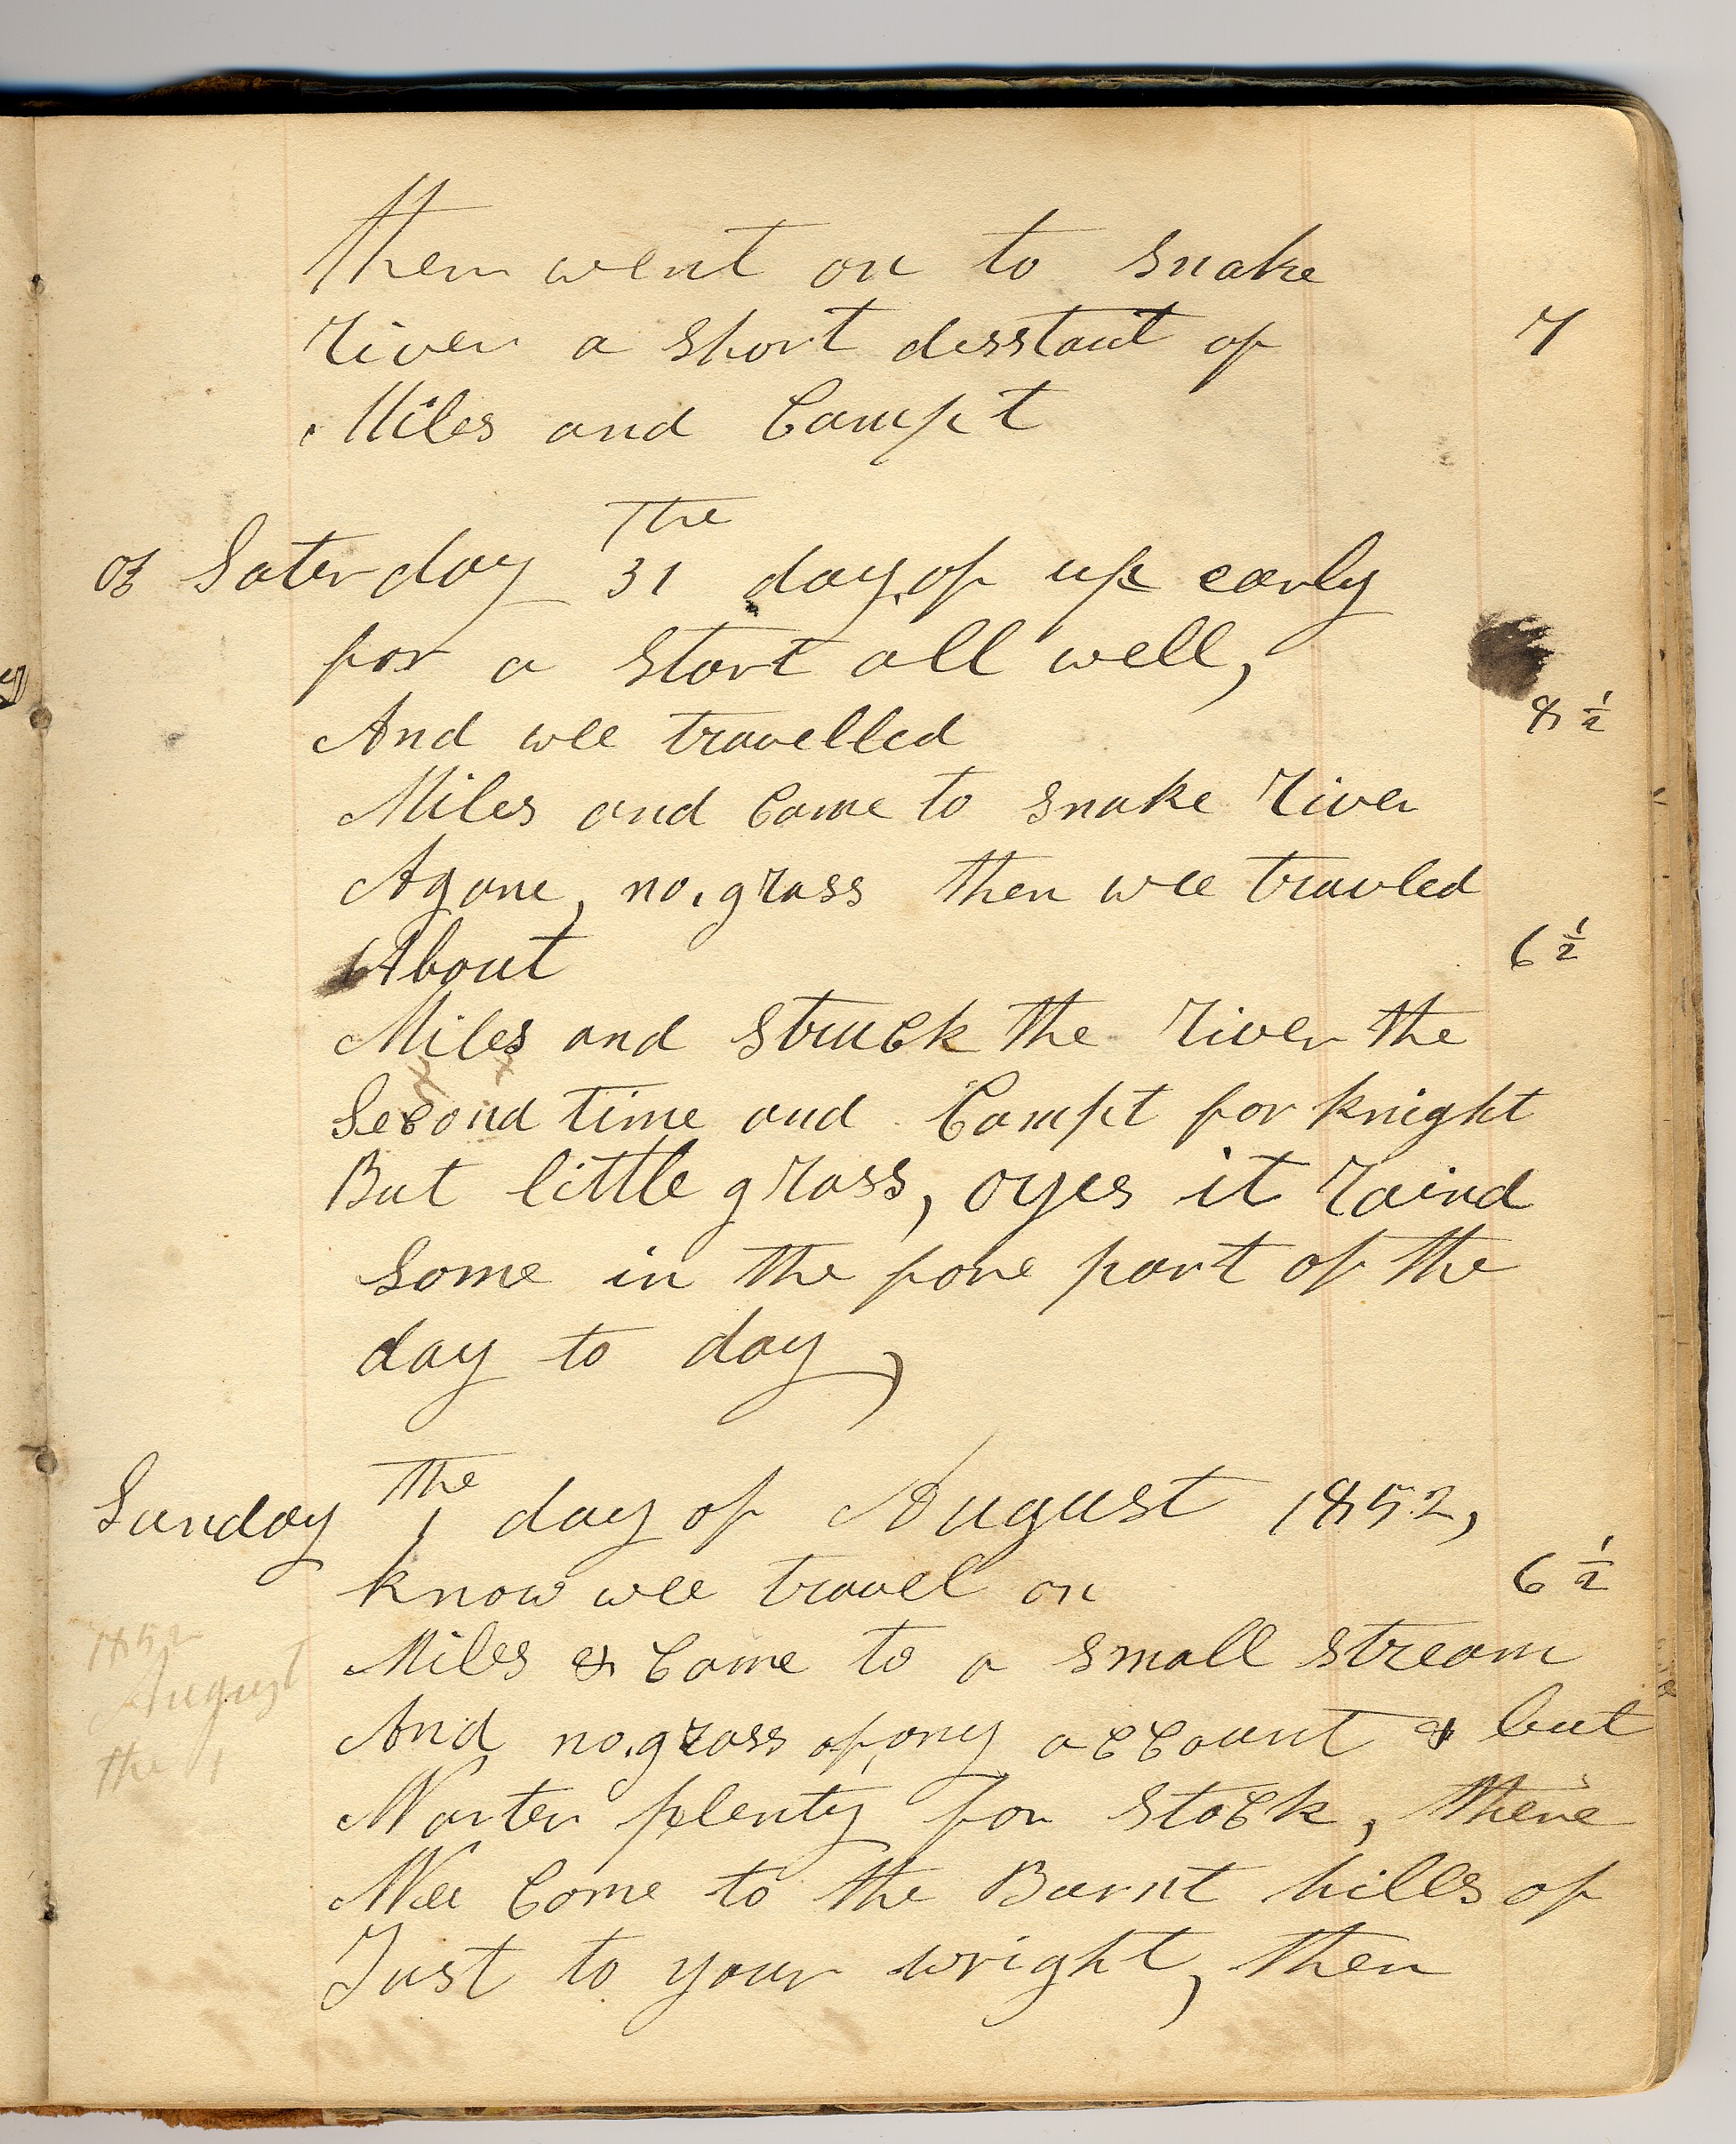 then went on to Snake
River a Short desstant of 7
Miles and Campt
The
of Saterday 31 day of up early
for a Start all well,
And wee travelled 8 1/2
Miles and Came to Snake River
Agane, no. grass then wee travled
About 6 1/2
Miles and Struck the River the
Second time and Campt for knight
But little grass, oyes it Raind
Some in the fore part of the
day to day,
the
Sunday 1 day of August 1852,
know wee travel on 6 1/2
Miles & Came to a Small Stream
And no. grass of any account & but
Warter plenty for Stock, there
Wee Come to the Burnt hills of
Just to your wright, then
1852
August
the 1